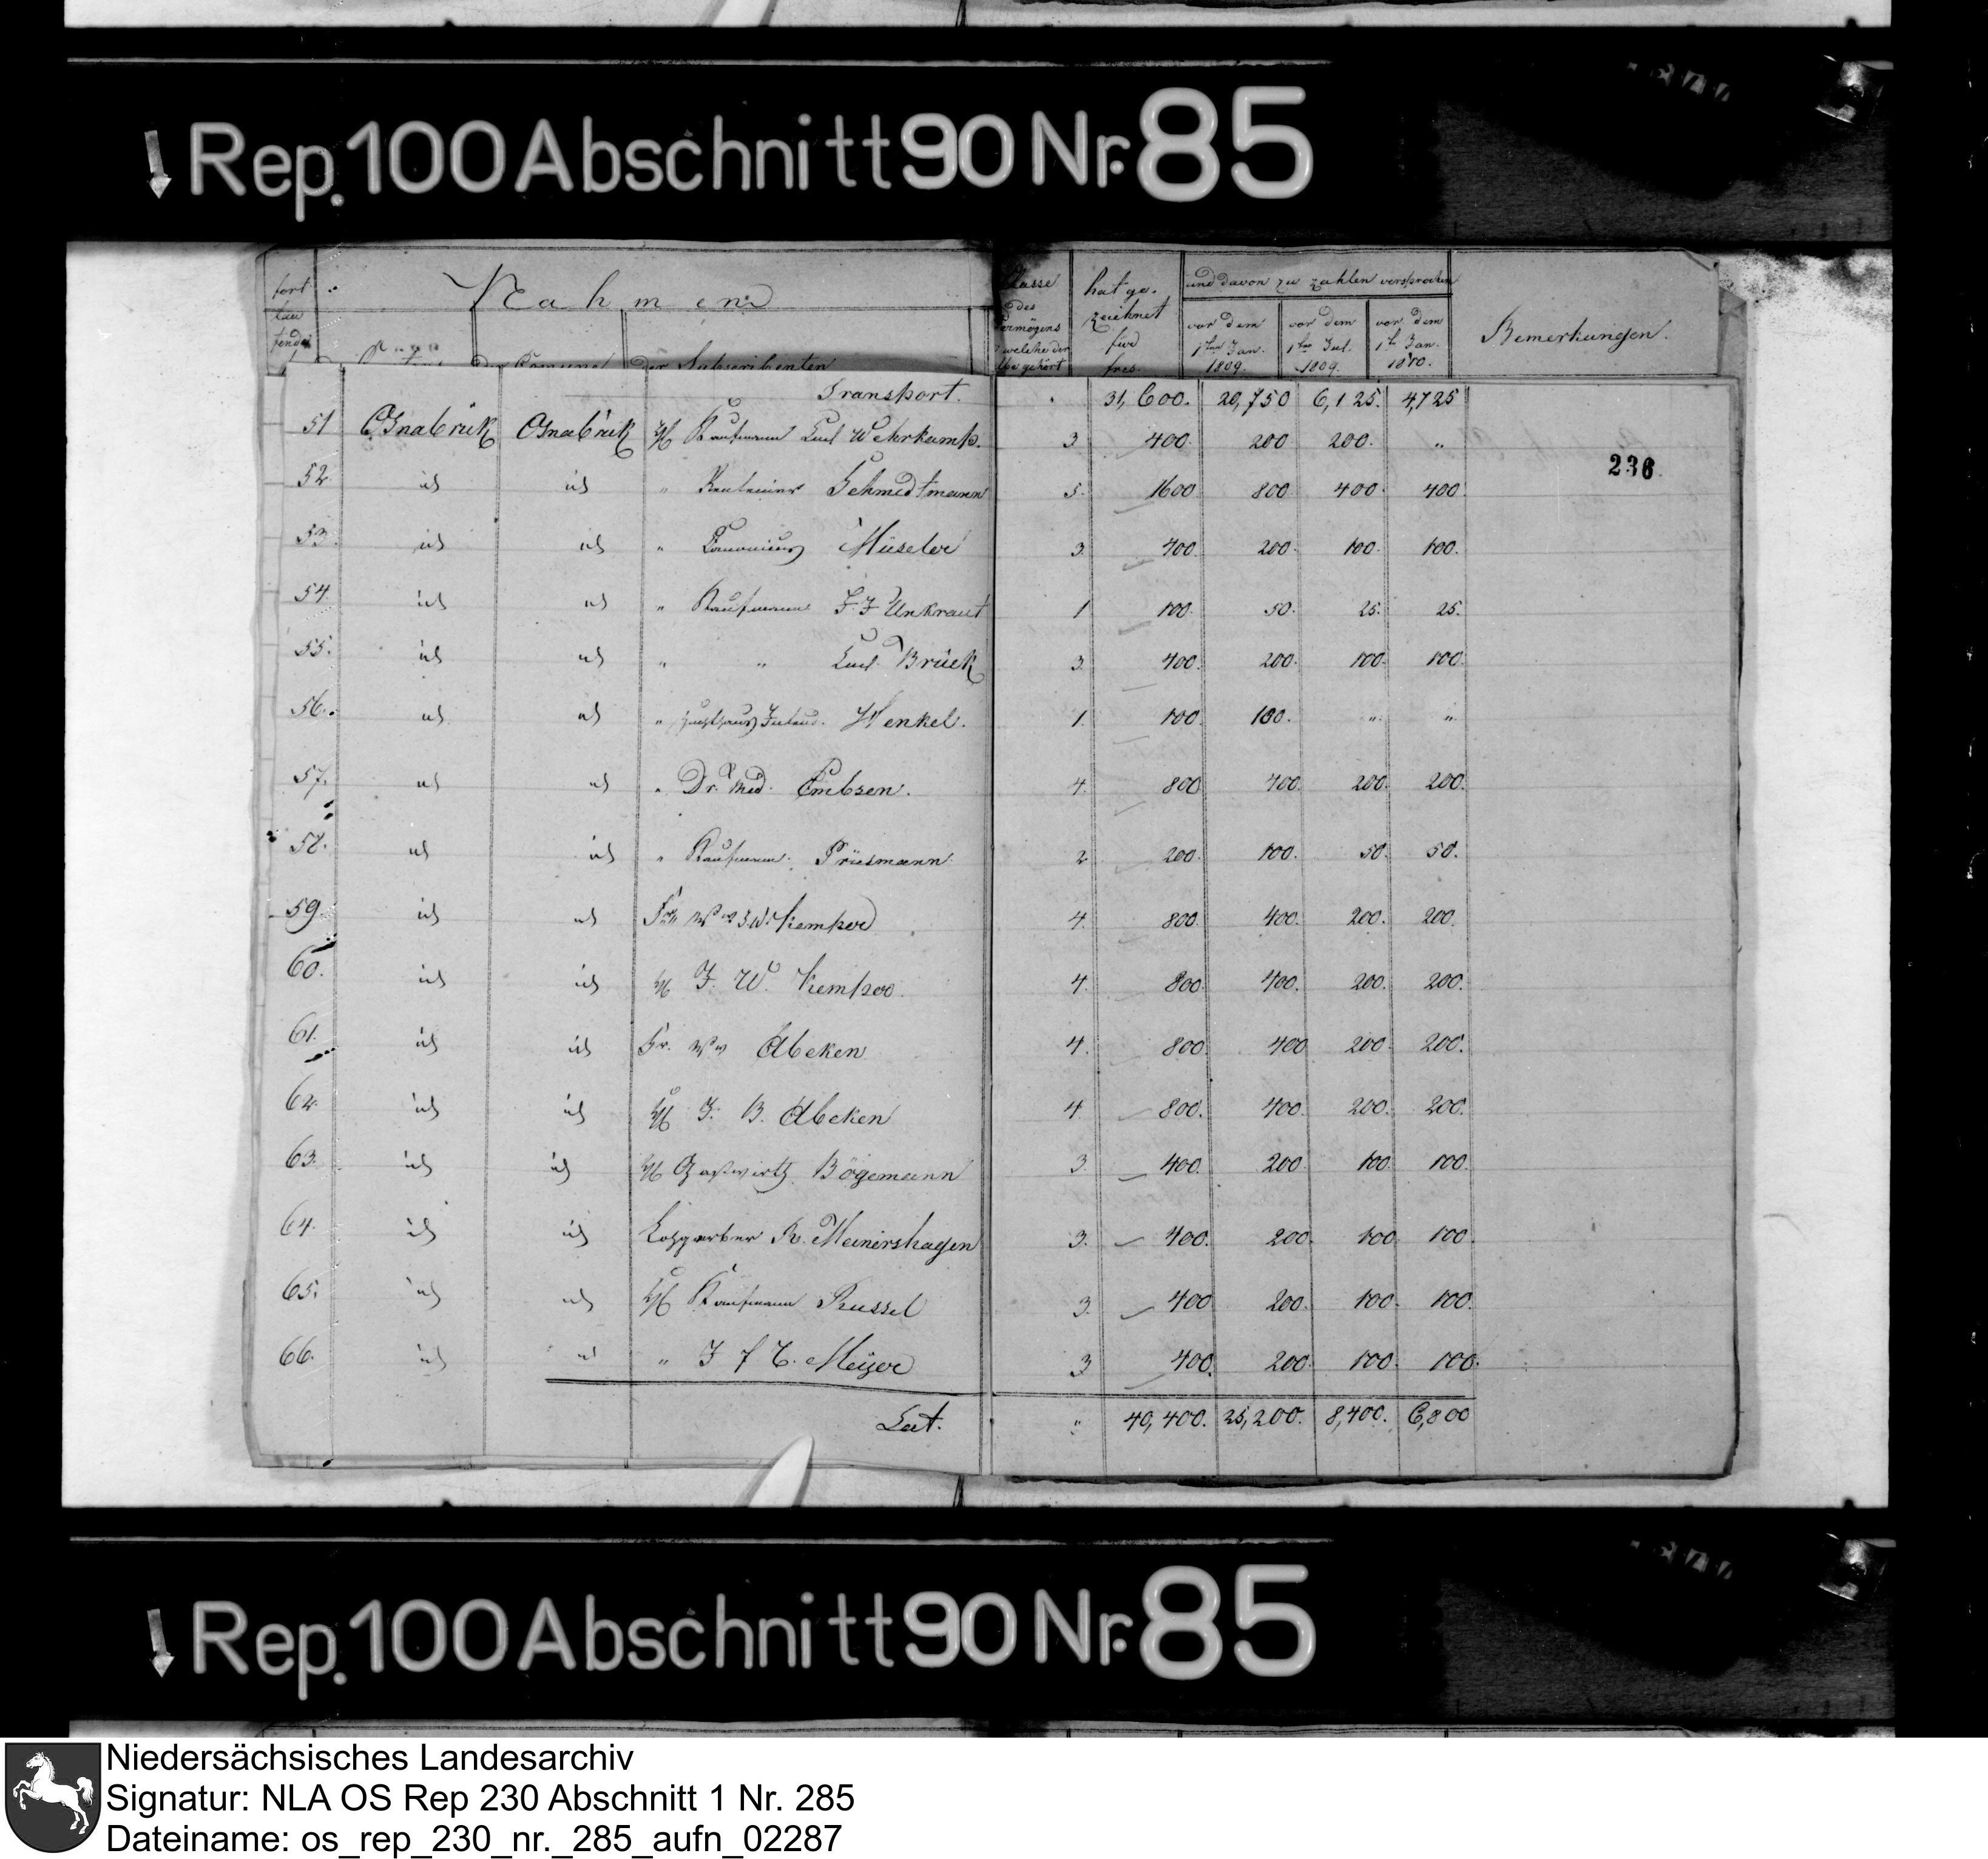 Rep. 100 Abschnitt 90 Nr. 85
fort
lau
fende
Nahmen
der Comune
der Subscribenten
Classe
des
Vermögens
welche der
gehört
hat ge-
zeichnet
für
frcs.
und davon zu zahlen versprochen
vor dem
1ten Jan.
1809.
vor dem
1ten Jul.
1809.
vor dem
1ten Jan.
1810.
Bemerkungen.
Transport. 31,600. 20,750 6,125. 4,725
51 Osnabrük Osnabrük H Kaufmann Carl Wehrkamp. 3 400. 200 200. "
236
52. id id " Rentenier Schmedtmann 5. 1600 800 400. 400.
53. id id " Canonicus Müseler 3. 400. 200. 100. 100.
54. id id " Kaufmann Unkraut 1 100. 50. 25. 25.
55. id id " " Carl Brück 3. 400. 200. 100. 100.
56. id id " Henkel. 1. 100. 100. " "
57. id id " Dr. Med. Embsen. 4. 800. 400. 200. 200.
58. id id " Kaufmann. Prüsmann. 2 200. 100. 50. 50.
59. id id Kemper 4. 800. 400. 200. 200.
60. id id H J. W. Kemper. 4. 800. 400. 200. 200.
61. id id Fr. Ww Abeken 4. 800. 400 200. 200.
62. id id H J. B. Abeken 4. 800. 400. 200. 200.
63. id id H Gastwirth Bögemann 3. 400. 200. 100. 100.
64. id id Lohgerber R. Meinershagen 3. 400. 200. 100. 100.
65. id id H Kaufmann Russel 3. 400 200. 100. 100.
66. id id " J F C. Meÿer 3 400. 200. 100. 100.
Lat. " 40,400. 25,200. 8,400. 6,800
Rep. 100 Abschnitt 90 Nr. 85
Niedersächsisches Landesarchiv
Signatur: NLA OS Rep 230 Abschnitt 1 Nr. 285
Dateiname: os_rep_230_nr._285_aufn_02287